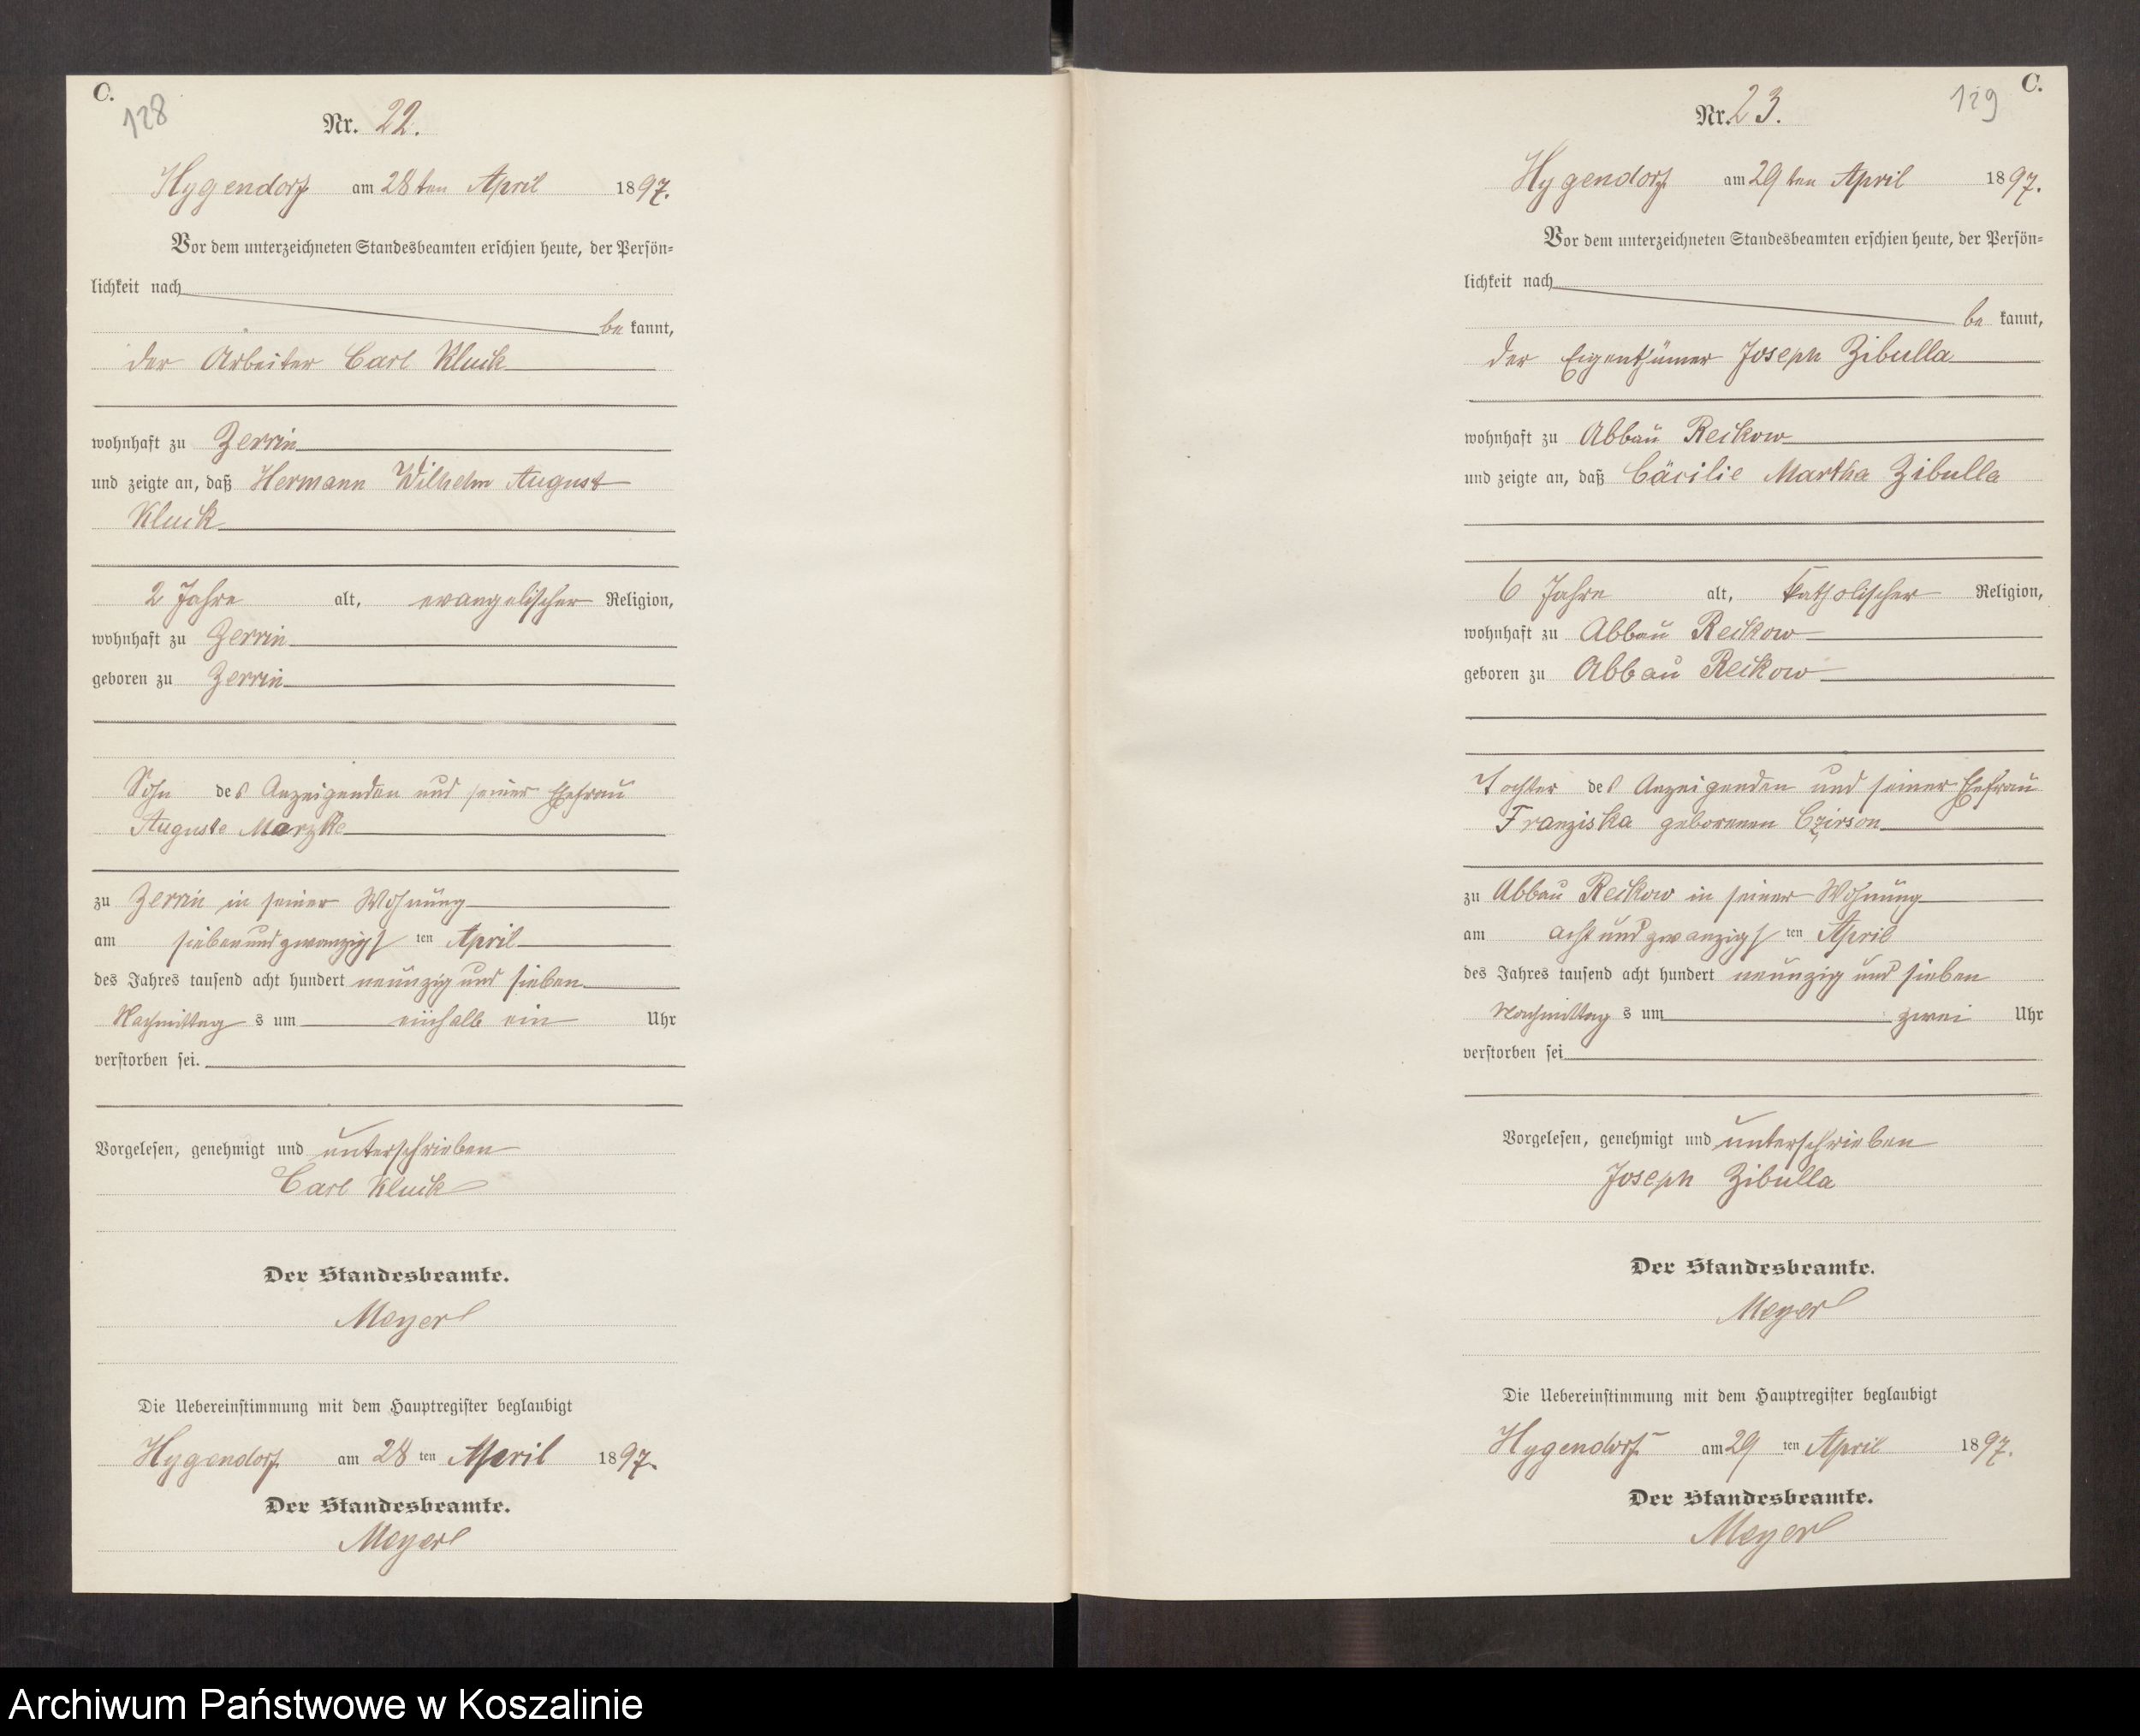 C.
128
Nr. 22.
Hygendorf am 28ten April 1897.
Vor dem unterzeichneten Standesbeamten erschien heute, der Persön-
lichkeit nach
be kannt,
der Arbeiter Carl Kluck
wohnhaft zu Zerrin
und zeigte an, daß Hermann Wilhelm August
Kluck
2 Jahre alt, evangelischer Religion,
wohnhaft zu Zerrin
geboren zu Zerrin
Sohn des Anzeigenden und seiner Ehefrau
Auguste Marzke
zu Zerrin in seiner Wohnung
am siebenundzwanzigsten April
des Jahres tausend acht hundert neunzig und sieben
Nachmittags um einhalb ein Uhr
verstorben sei.
Vorgelesen, genehmigt und unterschrieben
Carl Kluck
Der Standesbeamte.
Meyer
Die Uebereinstimmung mit dem Hauptregister beglaubigt
Hygendorf am 28ten April 1897.
Der Standesbeamte.
Meyer
129
C.
Nr. 23.
Hygendorf am 29ten April 1897.
Vor dem unterzeichneten Standesbeamten erschien heute, der Persön-
lichkeit nach
be kannt,
der Eigenthümer Joseph Zibulla
wohnhaft zu Abbau Reckow
und zeigte an, daß Cäcilie Martha Zibulla
6 Jahre alt, katholischer Religion,
wohnhaft zu Abbau Reckow
geboren zu Abbau Reckow
Tochter des Anzeigenden und seiner Ehefrau
Franziska geborenen Czirson
zu Abbau Reckow in seiner Wohnung
am acht und zwanzigsten April
des Jahres tausend acht hundert neunzig und sieben
Nachmittags um zwei Uhr
verstorben sei
Vorgelesen, genehmigt und unterschrieben
Joseph Zibulla
Der Standesbeamte.
Meyer
Die Uebereinstimmung mit dem Hauptregister beglaubigt
Hygendorf am 29ten April 1897.
Der Standesbeamte.
Meyer
Archiwum Państwowe w Koszalinie